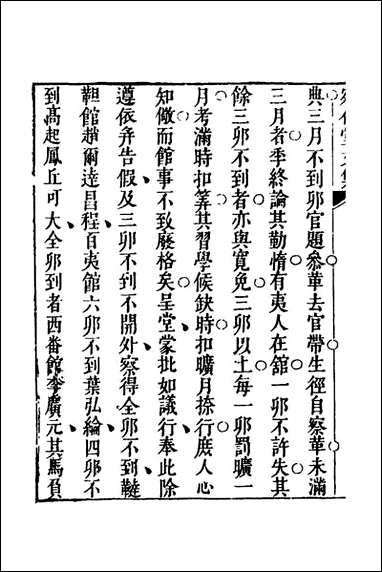 典三月不到卯官題叅革去官帶生徑自察革未滿
三月者季終論其勤惰有夷人在舘一卯不許失其
餘三卯不到者亦與寬免三卯以上每一卯罰曠一
月考滿時扣筭其習學候缺時扣曠月捺行庻人心
知儆而館事不致廢格矣呈堂蒙批如議行奉此除
遵依弁告假及三卯不到不開外察得全卯不到韃
靼館趙爾達昌程百夷館六卯不到葉弘綸四卯不
到高起鳳丘可大全卯到者西番館李廣元其馬負